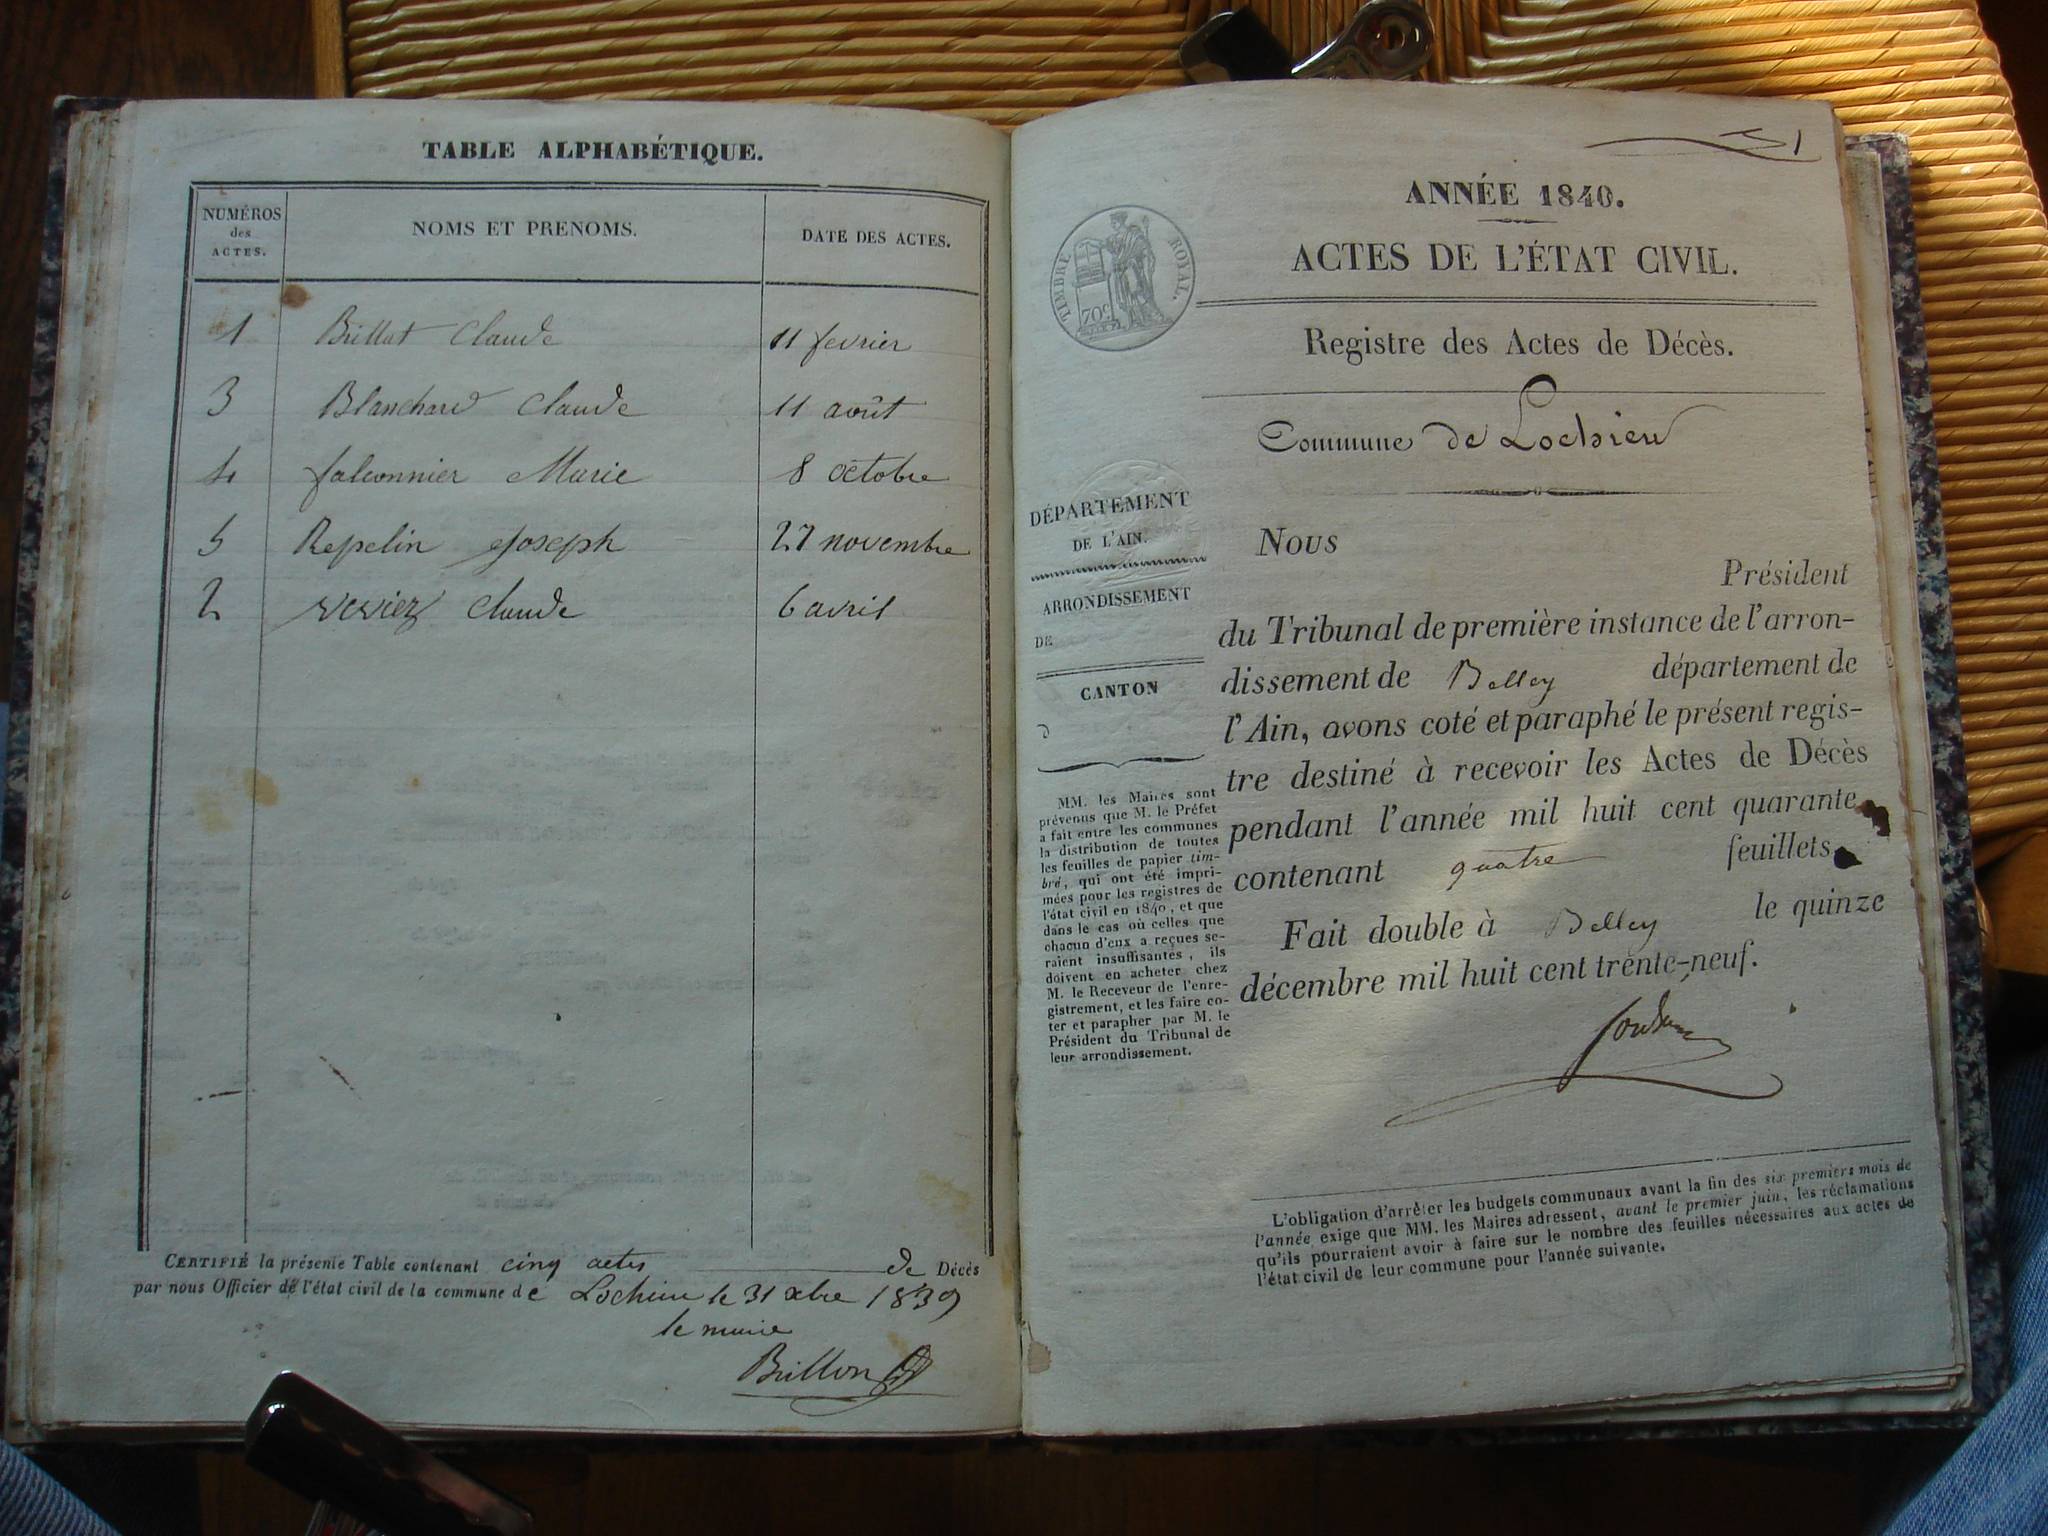 TABLE ALPHABÉTIQUE.
NUMÉROS
des
ACTES.
NOMS ET PRENOMS.
DATE DES ACTES.
1 Brillat Claude 11 fevrier
3 Blanchard Claude 11 août
4 falconnier Marie 8 octobre
5 Repelin Joseph 27 novembre
2 Claude 6 avril
CERTIFIÉ la présente Table contenant cinq actes de Décès
par nous Officier de l'état civil de la commune de Lochieu le 31 xbre 1839
le maire
Brillon
1
ANNÉE 1840.
ACTES DE L'ÉTAT CIVIL.
TIMBRE ROYAL.
70c
Registre des Actes de Décès.
Commune de Lochieu
DÉPARTEMENT
DE L'AIN.
ARRONDISSEMENT
DE
CANTON
d
MM. les Maires sont
prévenus que M. le Préfet
a fait entre les communes
la distribution de toutes
les feuilles de papier tim-
bré, qui ont été impri-
mées pour les registres de
l'état civil en 1840, et que
dans le cas où celles que
chacun d'eux a reçues se-
raient insuffisantes, ils
doivent en acheter chez
M. le Receveur de l'enre-
gistrement, et les faire co-
ter et parapher par M. le
Président du Tribunal de
leur arrondissement.
Nous
Président
du Tribunal de première instance de l'arron-
dissement de Belley département de
l'Ain, avons coté et paraphé le présent regis-
tre destiné à recevoir les Actes de Décès
pendant l'année mil huit cent quarante
contenant quatre feuillets.
Fait double à Belley le quinze
décembre mil huit cent trente-neuf.
L'obligation d'arrêter les budgets communaux avant la fin des six premiers mois de
l'année exige que MM. les Maires adressent, avant le premier juin, les réclamations
qu'ils pourraient avoir à faire sur le nombre des feuilles nécessaires aux actes de
l'état civil de leur commune pour l'année suivante.